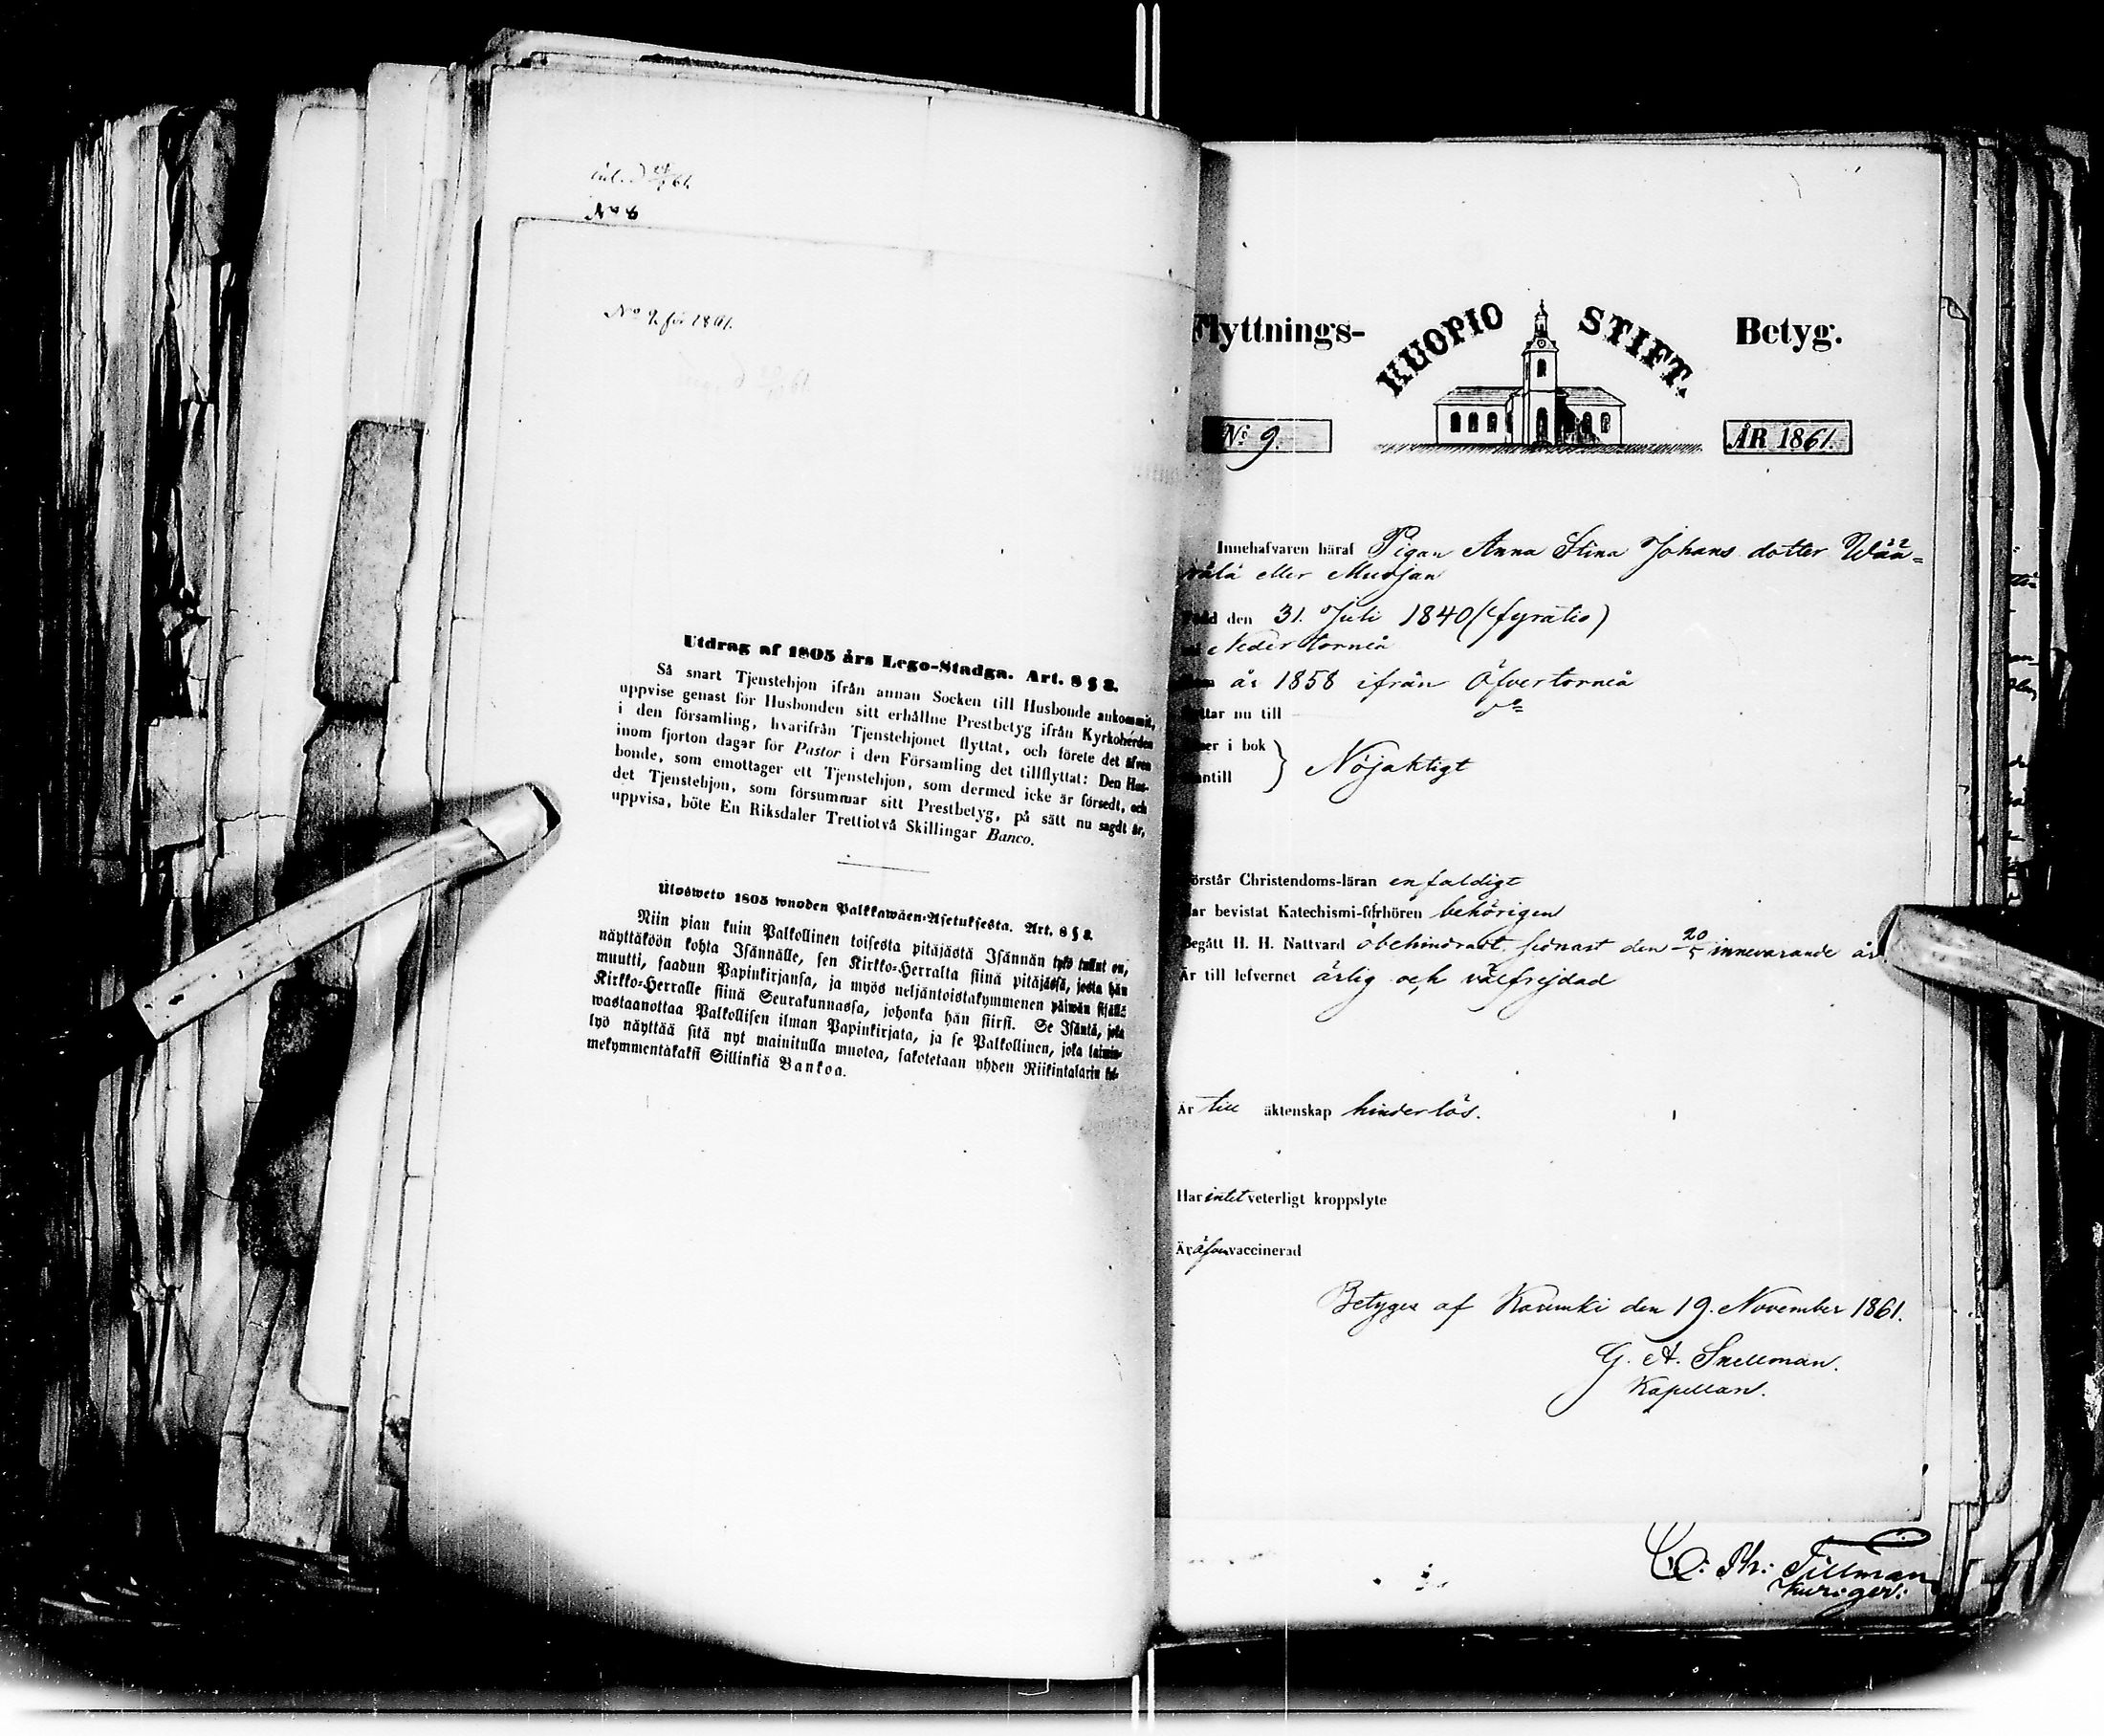 No 8
No 9 för 1861.
Utdrag af 1805 års Lego-Stadga. Art. 8 § 8.
Så snart Tjenstehjon ifrån annan Socken till Husbonde ankommit,
uppvise genast för Husbonden sitt erhållne Prestbetyg ifrån Kyrkoherden
i den församling, hvarifrån Tjenstehjonet flyttat, och förete det äfven
inom fjorton dagar för Pastor i den Församling det tillflyttat: Den Hus-
bonde, som emottager ett Tjenstehjon, som dermed icke är försedt, och
det Tjenstehjon, som försummar sitt Prestbetyg, på sätt nu sagdt är,
uppvisa, böte En Riksdaler Trettiotvå Skillingar Banco.
Ulosweto 1805 wuoden Palkkawäen-Asetuksesta. Art. 8 § 8.
Niin pian kuin Palkollinen toisesta pitäjästä Isännän tykö tullut on,
näyttäköön kohta Isännälle, sen Kirkko-Herralta siinä pitäjässä, josta hän
muutti, saadun Papinkirjansa, ja myös neljäntoistakymmenen päiwän sisällä
Kirkko-Herralle siinä Seurakunnassa, johonka hän siirsi. Se Isäntä, joka
wastaanottaa Palkollisen ilman Papinkirjata, ja se Palkollinen, joka laimin-
lyö näyttää sitä nyt mainitulla muotoa, sakotetaan yhden Riikintalarin kol-
mekymmentäkaksi Sillinkiä Bankoa.
Flyttnings- KUOPIO STIFT. Betyg.
No 9. ÅR 1861.
Innehafvaren häraf Pigan Anna Stina Johans dotter Wää-
rälä eller Muojan
Född den 31. Juli 1840 (fyratio)
i Neder Torneå
år 1858 ifrån Öfvertorneå
flyttar nu till do
Läser i bok } Nöjaktigt
utantill
Förstår Christendoms-läran enfaldigt
Har bevistat Katechismi-förhören behörigen
Begått H. H. Nattvard obehindradt sednast den 20/5 innevarande år.
Är till lefvernet ärlig och välfrejdad
Är till äktenskap hinderlös.
Har intet veterligt kroppslyte
Är äfven vaccinerad
Betygas af Karunki den 19. November 1861.
G. A. Snellman.
Kapellan.
Tillman